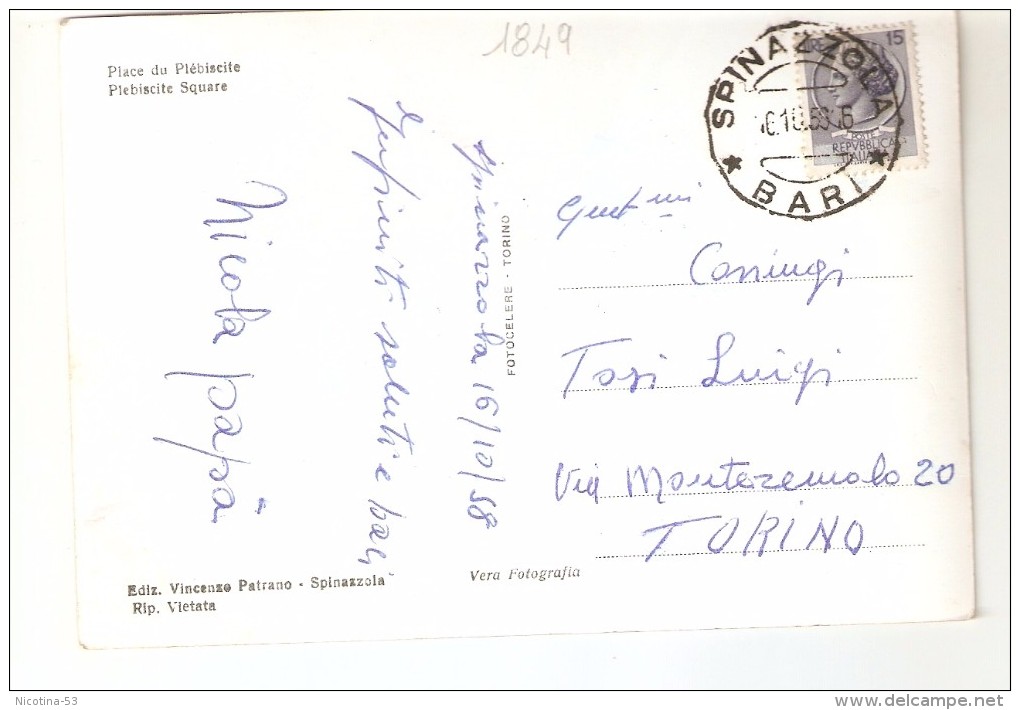 1849
Place du Plébiscite
Plebiscite Square
SPINAZZOLA
16.10.58
BARI
15
POSTE
REPVBBLICA
ITALIANA
Spinazzola 16/10/58
Infiniti saluti e baci
Nicola papà
FOTOCELERE - TORINO
Gent mi
Coniugi
Tosi Luigi
Via Montezemolo 20
TORINO
Ediz. Vincenzo Patrano - Spinazzola
Rip. Vietata
Vera Fotografia
Nicotina-53
delcampe.net